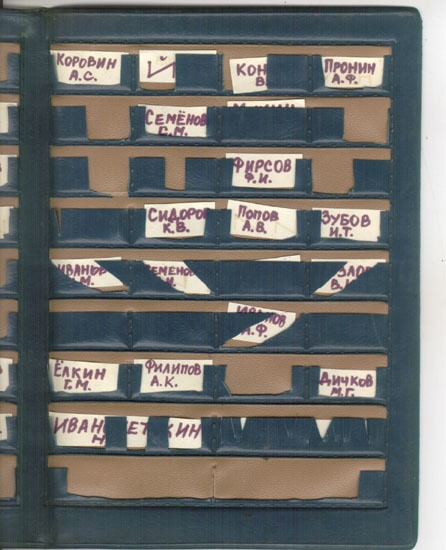 КОРОВИН
А.С.
Й
КОН
В
ПРОНИН
А.Ф.
СЕМЁНОВ
С.М.
ФИРСОВ
Ф.И.
СИДОРОВ
К.В.
ПОПОВ
А.В.
ЗУБОВ
И.Т.
ИВАНОВ
М.
СЕМЕНОВ
И.
ИВАНОВ
А.Ф.
ЁЛКИН
Г.М.
ФИЛИПОВ
А.К.
ДИЧКОВ
М.Г.
ИВАН